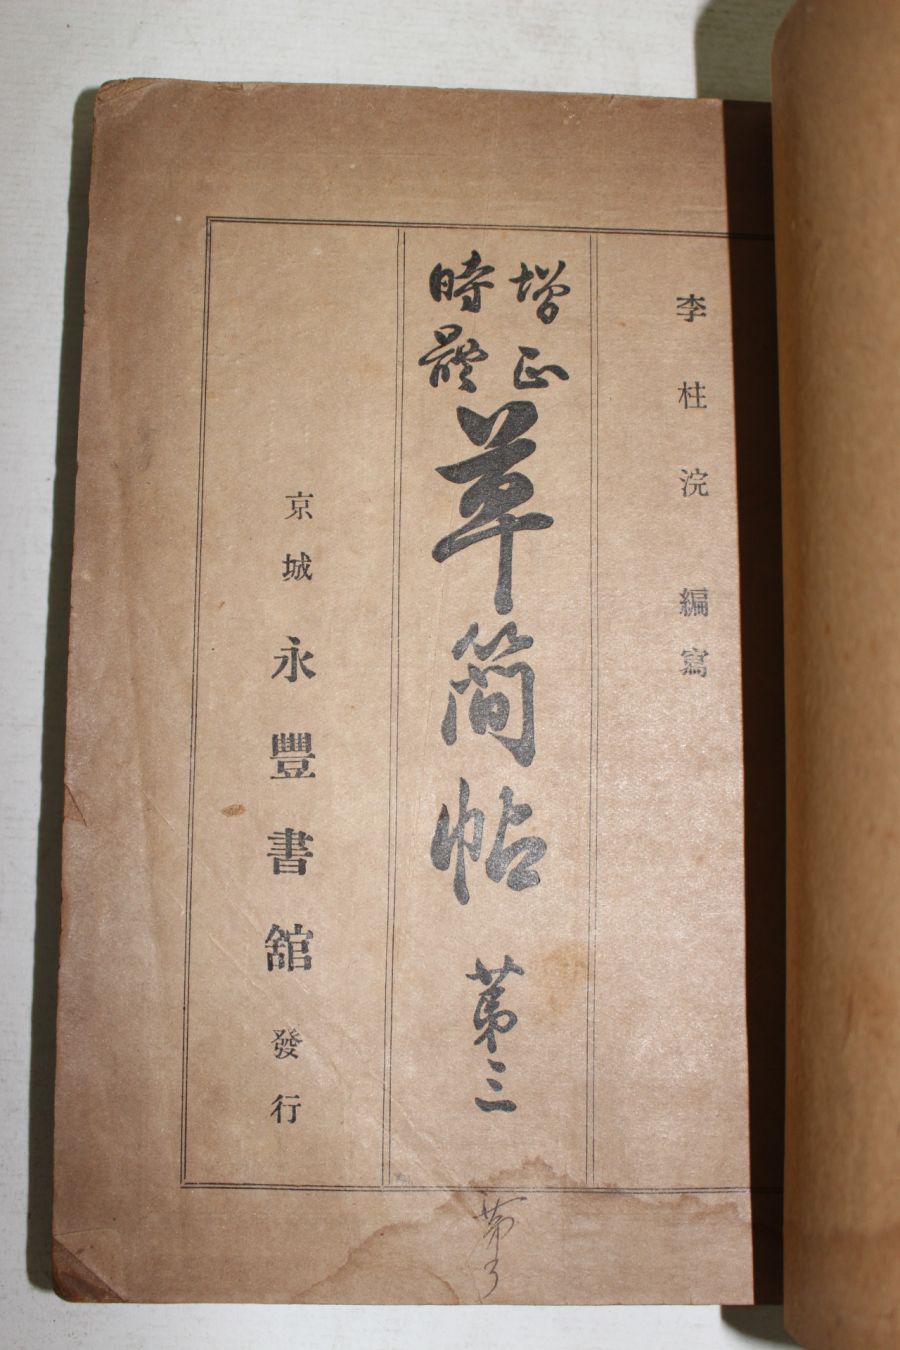 李柱浣 編寫
增正
時體
草簡帖 第三
京城 永豐書舘 發行
第